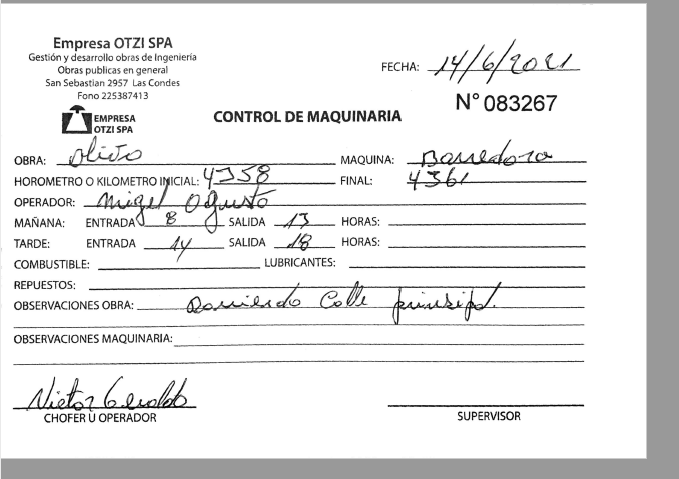 Empresa OTZI SPA
Gestión y desarrollo obras de Ingeniería
Obras publicas en general
San Sebastian 2957 Las Condes
Fono 225387413
EMPRESA
OTZI SPA
FECHA: 14/6/2021
N° 083267
CONTROL DE MAQUINARIA
OBRA: Olivo MAQUINA: Barredora
HOROMETRO O KILOMETRO INICIAL: 4358 FINAL: 4361
OPERADOR: Migel Ogusto
MAÑANA: ENTRADA 8 SALIDA 13 HORAS:
TARDE: ENTRADA 14 SALIDA 18 HORAS:
COMBUSTIBLE: LUBRICANTES:
REPUESTOS:
OBSERVACIONES OBRA: Barriendo Calle prinsipal.
OBSERVACIONES MAQUINARIA:
CHOFER U OPERADOR SUPERVISOR